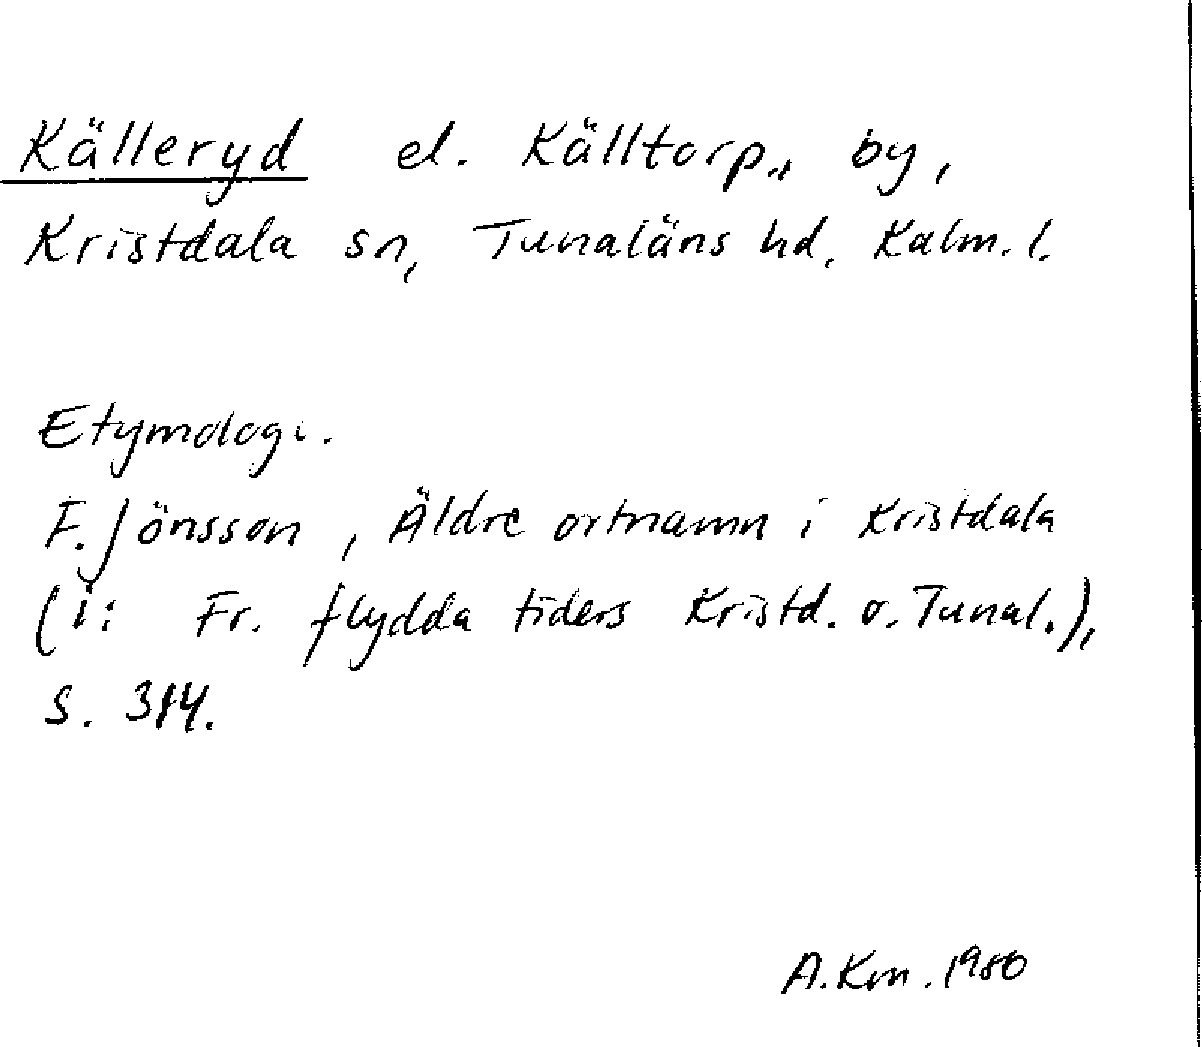 Källeryd el. Källtorp, by,
Kristdala sn, Tunaläns hd, Kalm. l.
Etymologi.
F. Jönsson, Äldre ortnamn i Kristdala
(i: Fr. flydda tiders Kristd. o. Tunal.),
S. 314.
A. Km. 1980